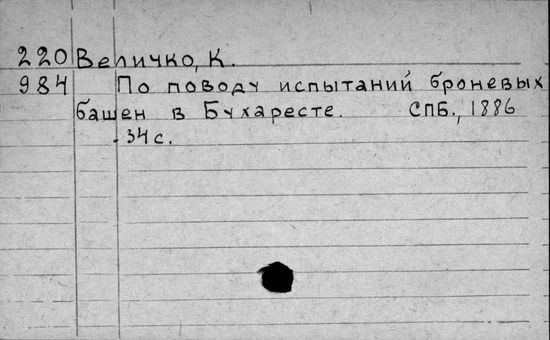 220 Величко, К.
984 По поводу испытаний броневых
башен в Бухаресте. СПБ., 1886
34 с.